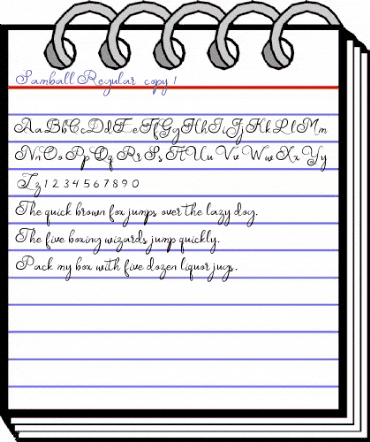 Samball Regular copy 1
AaBbCcDdEeFfGgHhIiJjKkLlMm
NnOoPpQqRrSsTtUuVvWwXxYy
Zz1234567890
The quick brown fox jumps over the lazy dog.
The five boxing wizards jump quickly.
Pack my box with five dozen liquor jugs.